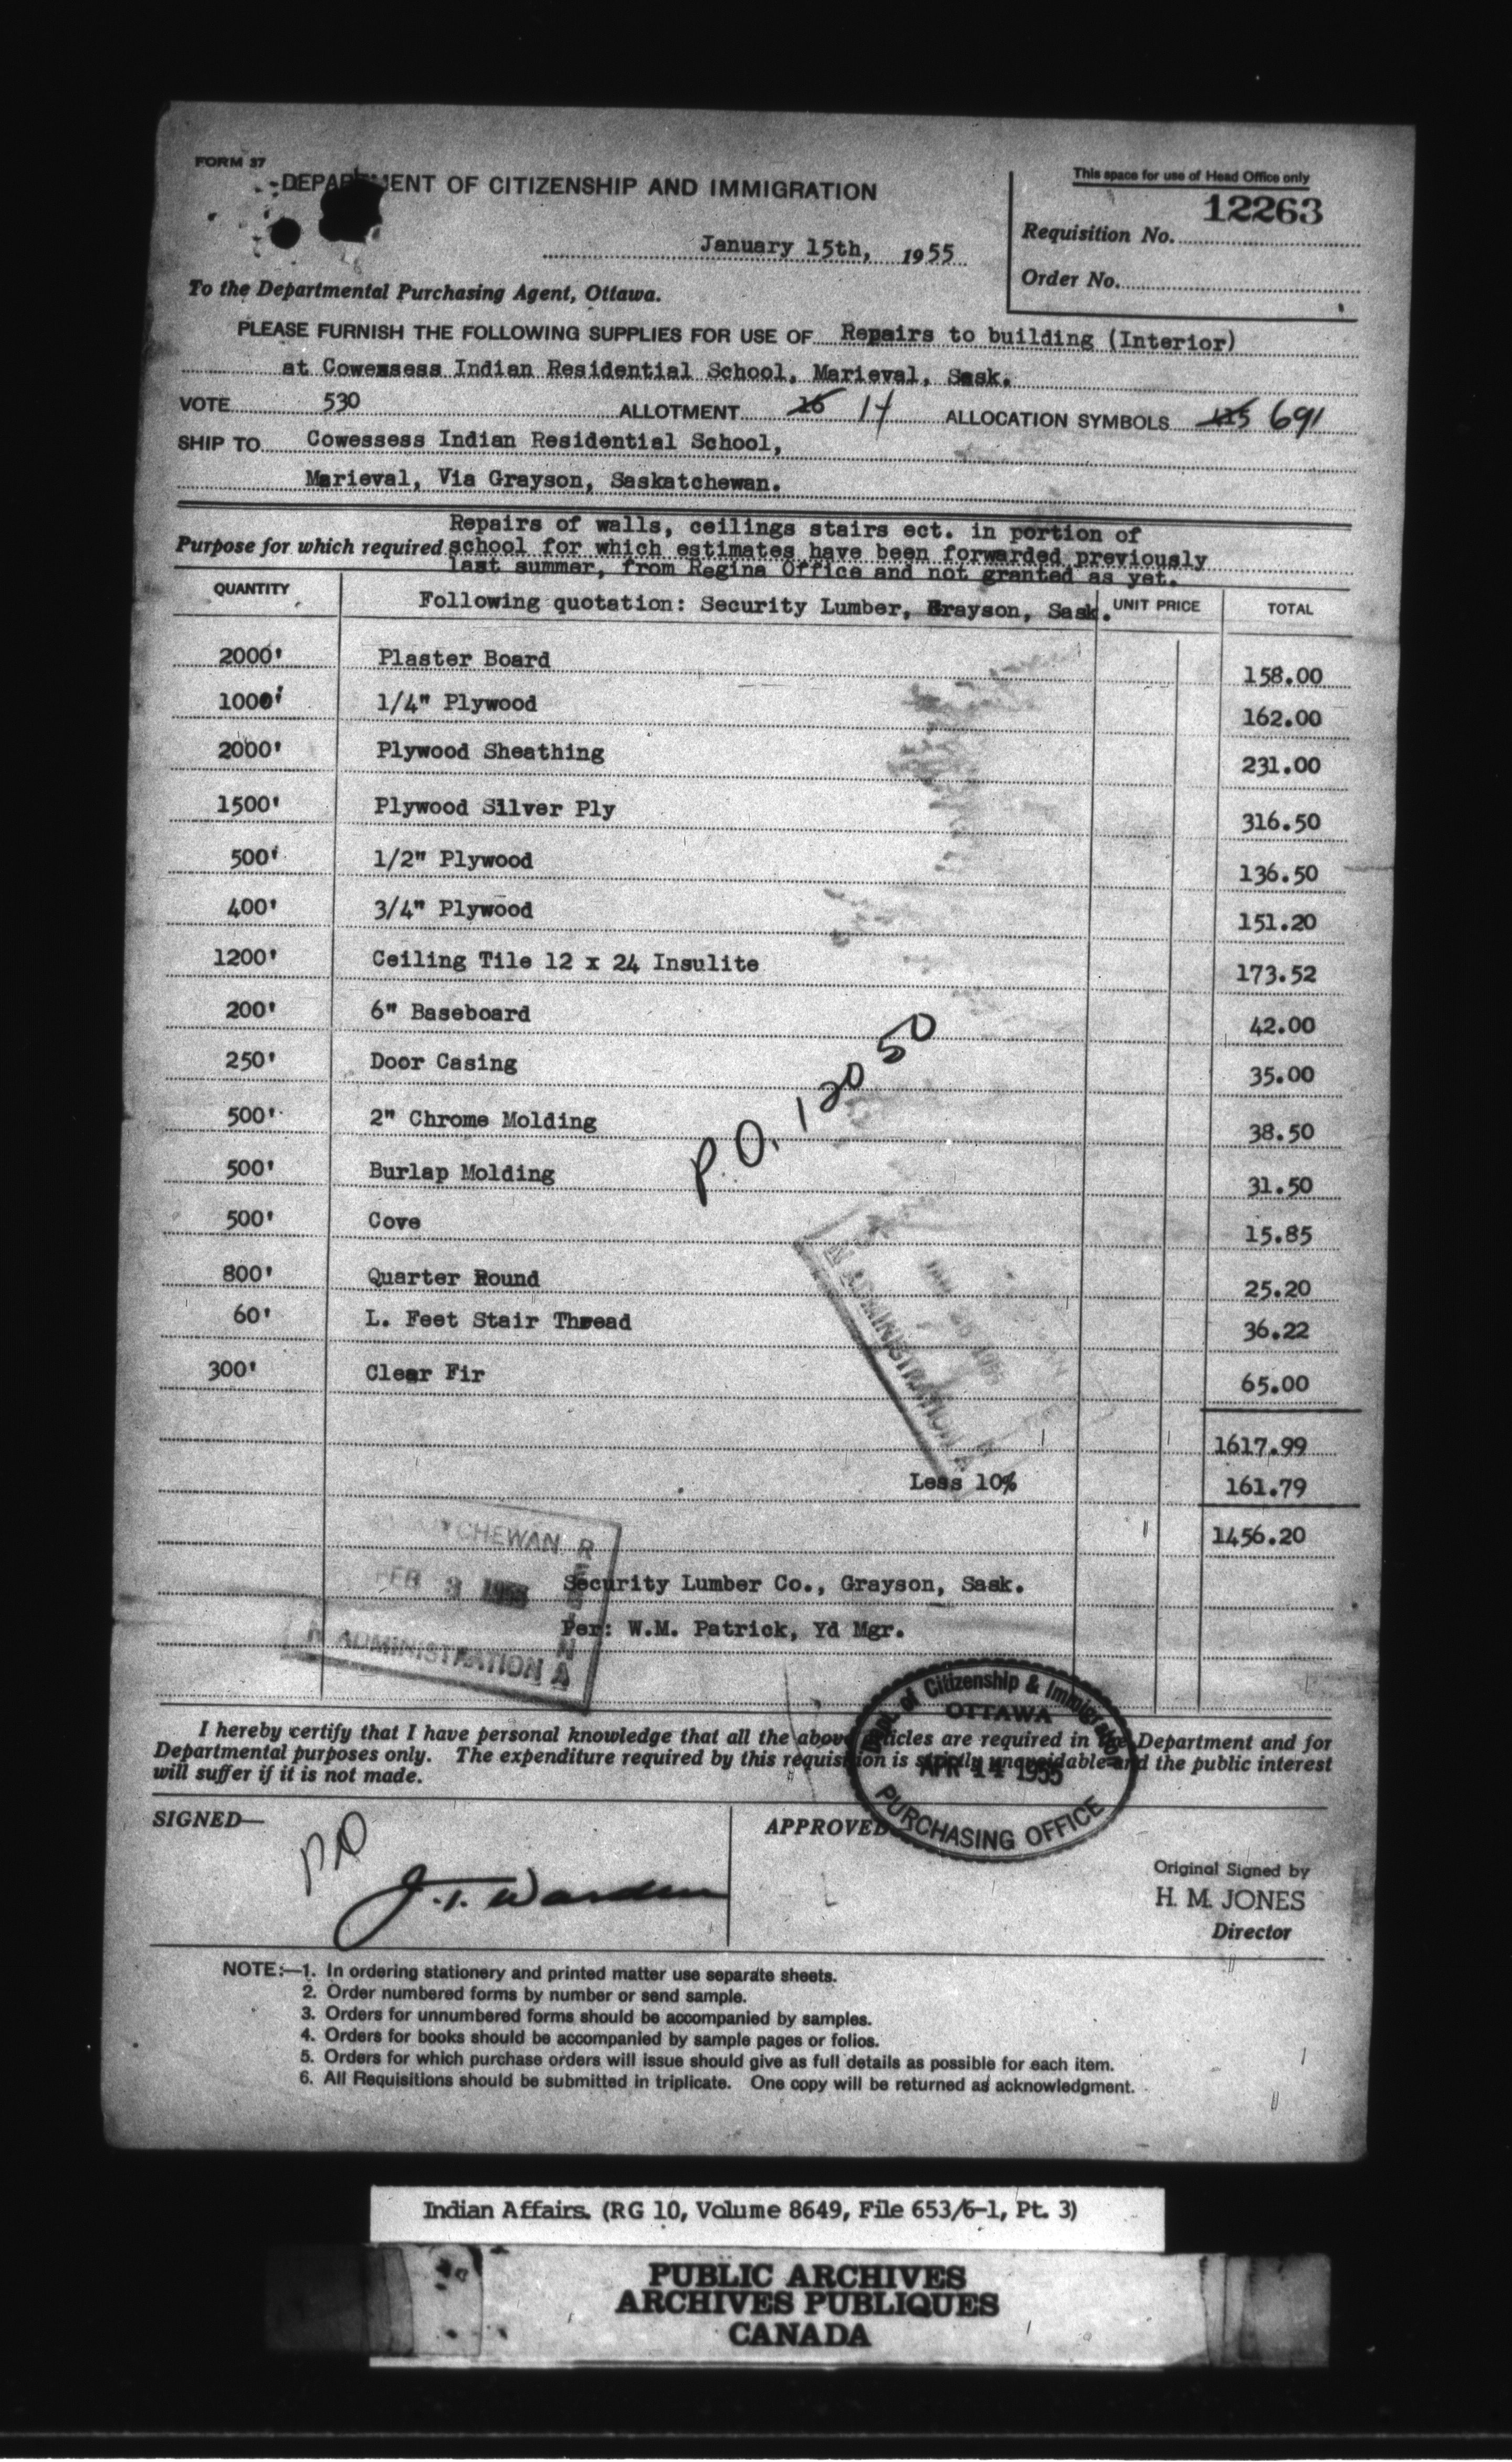 FORM 37
DEPARTMENT OF CITIZENSHIP AND IMMIGRATION
This space for use of Head Office only
12263
Requisition No.
January 15th, 1955
Order No.
To the Departmental Purchasing Agent, Ottawa.
PLEASE FURNISH THE FOLLOWING SUPPLIES FOR USE OF Repairs to building (Interior)
at Cowessess Indian Residential School, Marieval, Sask.
VOTE 530 ALLOTMENT 26 17 ALLOCATION SYMBOLS 691
SHIP TO Cowessess Indian Residential School,
Marieval, Via Grayson, Saskatchewan.
Repairs of walls, ceilings stairs ect. in portion of
Purpose for which required school for which estimates have been forwarded previously
last summer, from Regina Office and not granted as yet.
QUANTITY Following quotation: Security Lumber, Grayson, Sask. UNIT PRICE TOTAL
2000' Plaster Board 158.00
1000' 1/4" Plywood 162.00
2000' Plywood Sheathing 231.00
1500' Plywood Silver Ply 316.50
500' 1/2" Plywood 136.50
400' 3/4" Plywood 151.20
1200' Ceiling Tile 12 x 24 Insulite 173.52
200' 6" Baseboard 42.00
250' Door Casing 35.00
500' 2" Chrome Molding 38.50
500' Burlap Molding 31.50
500' Cove 15.85
800' Quarter Round 25.20
60' L. Feet Stair Thread 36.22
300' Clear Fir 65.00
P.O. 12050
N ADMINISTRATION A
1617.99
Less 10% 161.79
1456.20
CHEWAN R
FEB 3 1955
N ADMINISTRATION A
Security Lumber Co., Grayson, Sask.
Per: W.M. Patrick, Yd Mgr.
I hereby certify that I have personal knowledge that all the above articles are required in the Department and for
Departmental purposes only. The expenditure required by this requisition is strictly unavoidable and the public interest
will suffer if it is not made.
Dept. of Citizenship & Immigration
OTTAWA
APR 14 1955
PURCHASING OFFICE
SIGNED—
J. T. Warden
APPROVED
Original Signed by
H. M. JONES
Director
NOTE:—1. In ordering stationery and printed matter use separate sheets.
2. Order numbered forms by number or send sample.
3. Orders for unnumbered forms should be accompanied by samples.
4. Orders for books should be accompanied by sample pages or folios.
5. Orders for which purchase orders will issue should give as full details as possible for each item.
6. All Requisitions should be submitted in triplicate. One copy will be returned as acknowledgment.
Indian Affairs. (RG 10, Volume 8649, File 653/6-1, Pt. 3)
PUBLIC ARCHIVES
ARCHIVES PUBLIQUES
CANADA